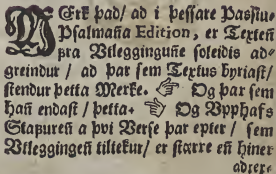 MErk þad/ ad i þessare Passiu-
Psalmaña Edition, er Texteñ
fra Vtlegginguñe soleidis ad-
greindur / ad þar sem Textus byriast/
stendur þetta Merke. ☞ Og þar sem
hañ endast / þetta. ☜ Og Vpphafs
Stafureñ a þvi Verse þar epter / sem
Vtleggingeñ tiltekur/ er stærre eñ hiner
adrer.